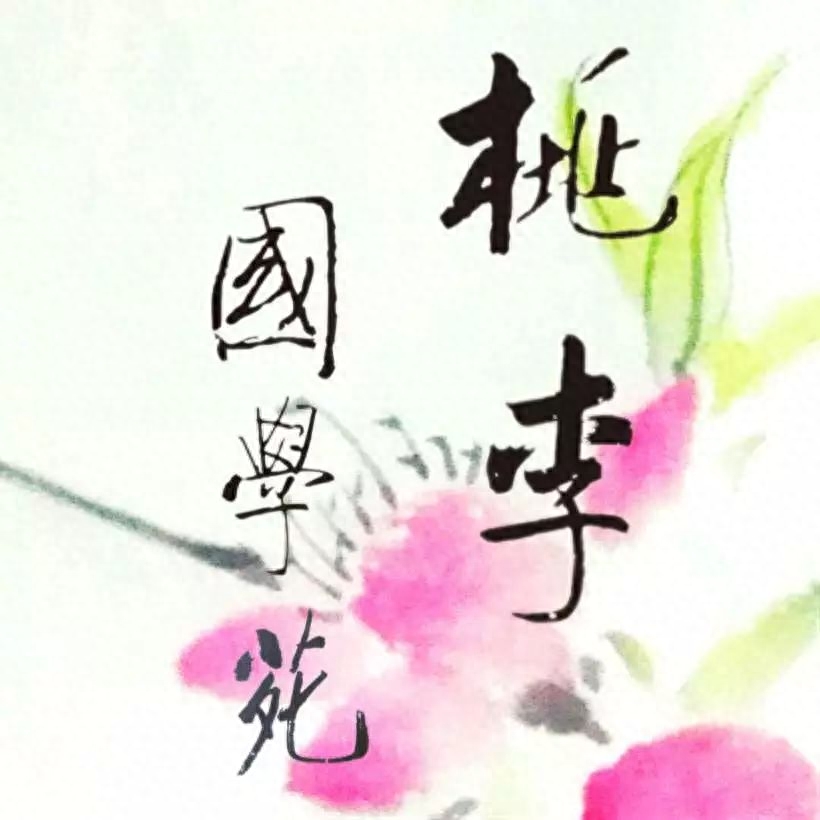 桃李
國學苑